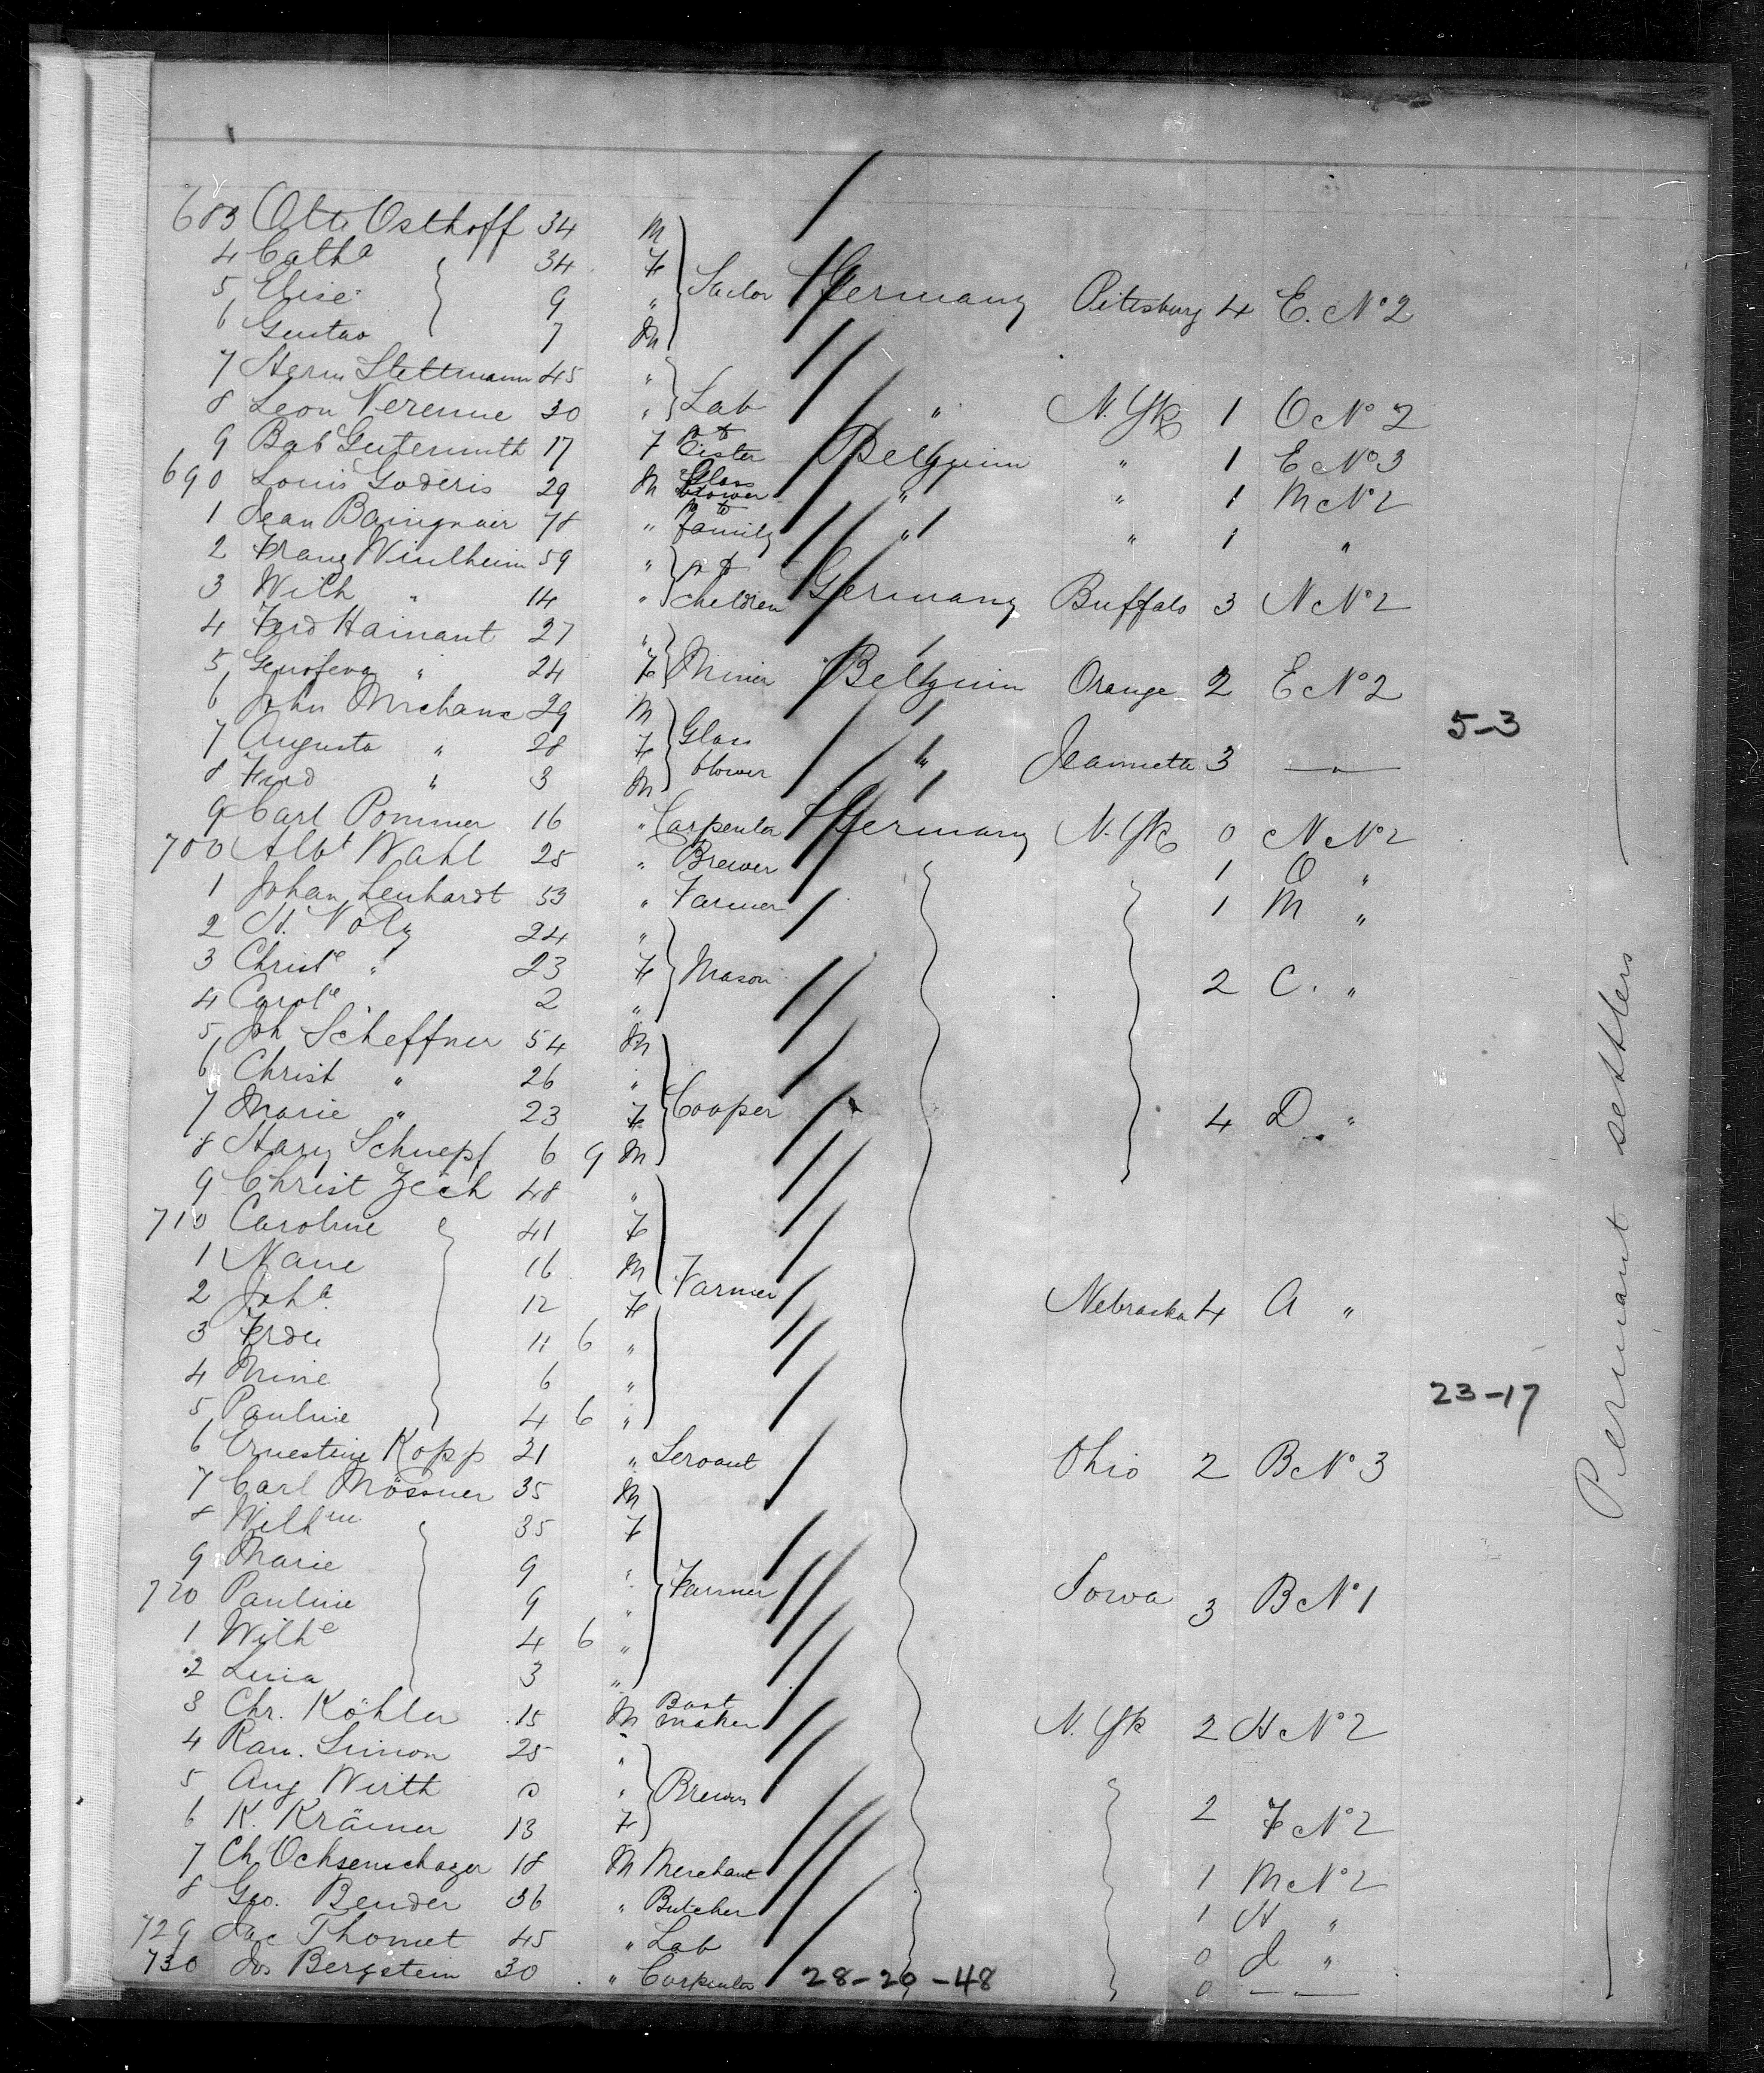 683 Otto Osthoff 34 M
4 Cath a 34 F
5 Elise 9 " Sailor Germany Pittsburg 4 E. No 2
6 Gustav 7 M
7 Herm Stettmann 45 "
8 Leon Verenne 30 " Lab " N. Yk 1 O No 2
9 Bab Gutermuth 17 F to Sister Belgium " 1 E No 3
690 Louis Goderis 29 M Glass blower " " 1 M No 2
1 Jean 78 " to family " " 1 "
2 Franz 59 "
3 Wilh " 14 " children Germany Buffalo 3 N No 2
4 Ferd Hainaut 27 "
5 Genofeva " 24 F Miner Belgium Orange 2 E No 2
6 John 29 M
7 Augusta " 28 F Glass blower " Jeannette 3 — " —
5-3
8 Ferd " 3 M
9 Carl Pommer 16 " Carpenter Germany N. Yk 0 N No 2
700 Albt Wahl 25 " Brewer 1 O "
1 Johan Lenhardt 53 " Farmer 1 M "
2 H. Volz 24 "
3 Christe " 23 F Mason 2 C. "
4 Carole 2 "
5 Joh Scheffner 54 M
6 Christ " 26 "
7 Marie " 23 F Cooper 4 D. "
8 Harry Schnepf 6 9 M
9 Christ Zech 48 "
710 Caroline 41 F
1 16 M Farmer
2 Joha 12 F Nebraska 4 A "
3 11 6 "
4 Mine 6 "
5 Pauline 4 6 "
23-17
6 Ernestine Kopp 21 " Servant Ohio 2 B No 3
7 Carl Mössner 35 M
8 Wilhm 35 F
9 Marie 9 "
720 Pauline 9 " Farmer Iowa 3 B No 1
1 Wilhe 4 6 "
2 Lina 3 "
3 Chr. Köhler 15 M Boot maker N. Yk 2 H No 2
4 Simon 25 "
5 Aug Wirth " Brewer
6 K. Krämer 13 F 2 F No 2
7 Ch 18 M Merchant 1 M No 2
8 Geo. Bender 36 " Butcher 1 H "
729 Jac Thomet 45 " Lab 0 J "
730 Jos Bergstein 30 " Carpenter 28-20-48 0 — —
Permant settlers